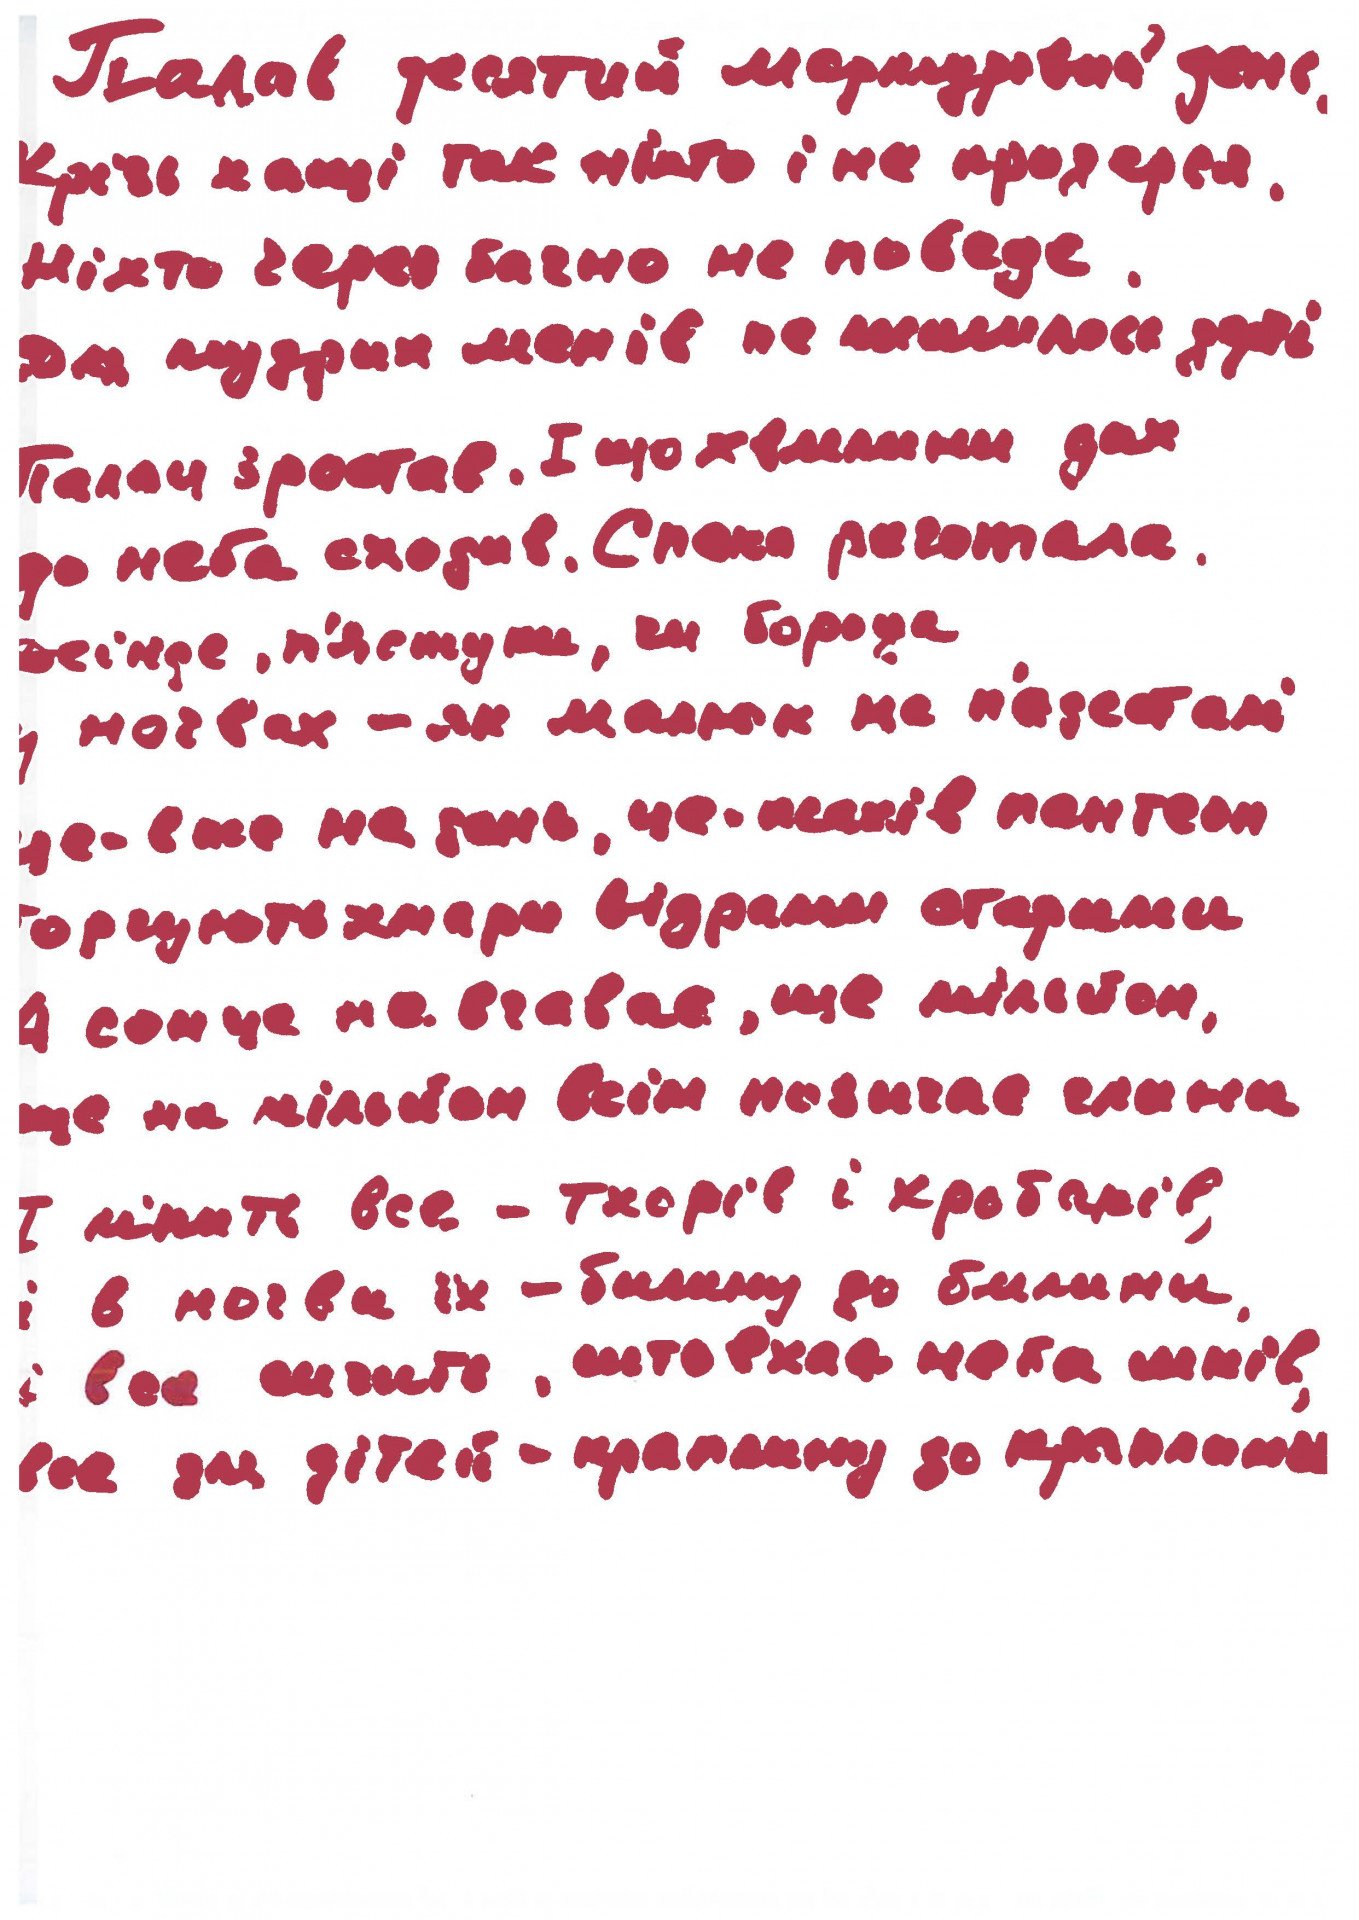 Палав десятий мармуровий день.
Крізь хащі так ніхто і не продерся.
Ніхто через багно не поведе.
Для мудрих менів не лишилось
Палац зростав. І щохвилини дах
до неба сходив. Спека реготала.
Осінде, п'ястуки, чи борода
у ночвах – як маляр на п'єдесталі
це – вже не день, це – псалмів пантеон
Торгують хмари відрами отарили
А сонце не вгаває, ще мільйон,
ще на мільйон всім позичає глини
І ліпить все – тхорів і хробаків,
і в ночви їх – билину до билини,
і все шиить, штовхає неба шпів,
все для дітей – краплину до краплини